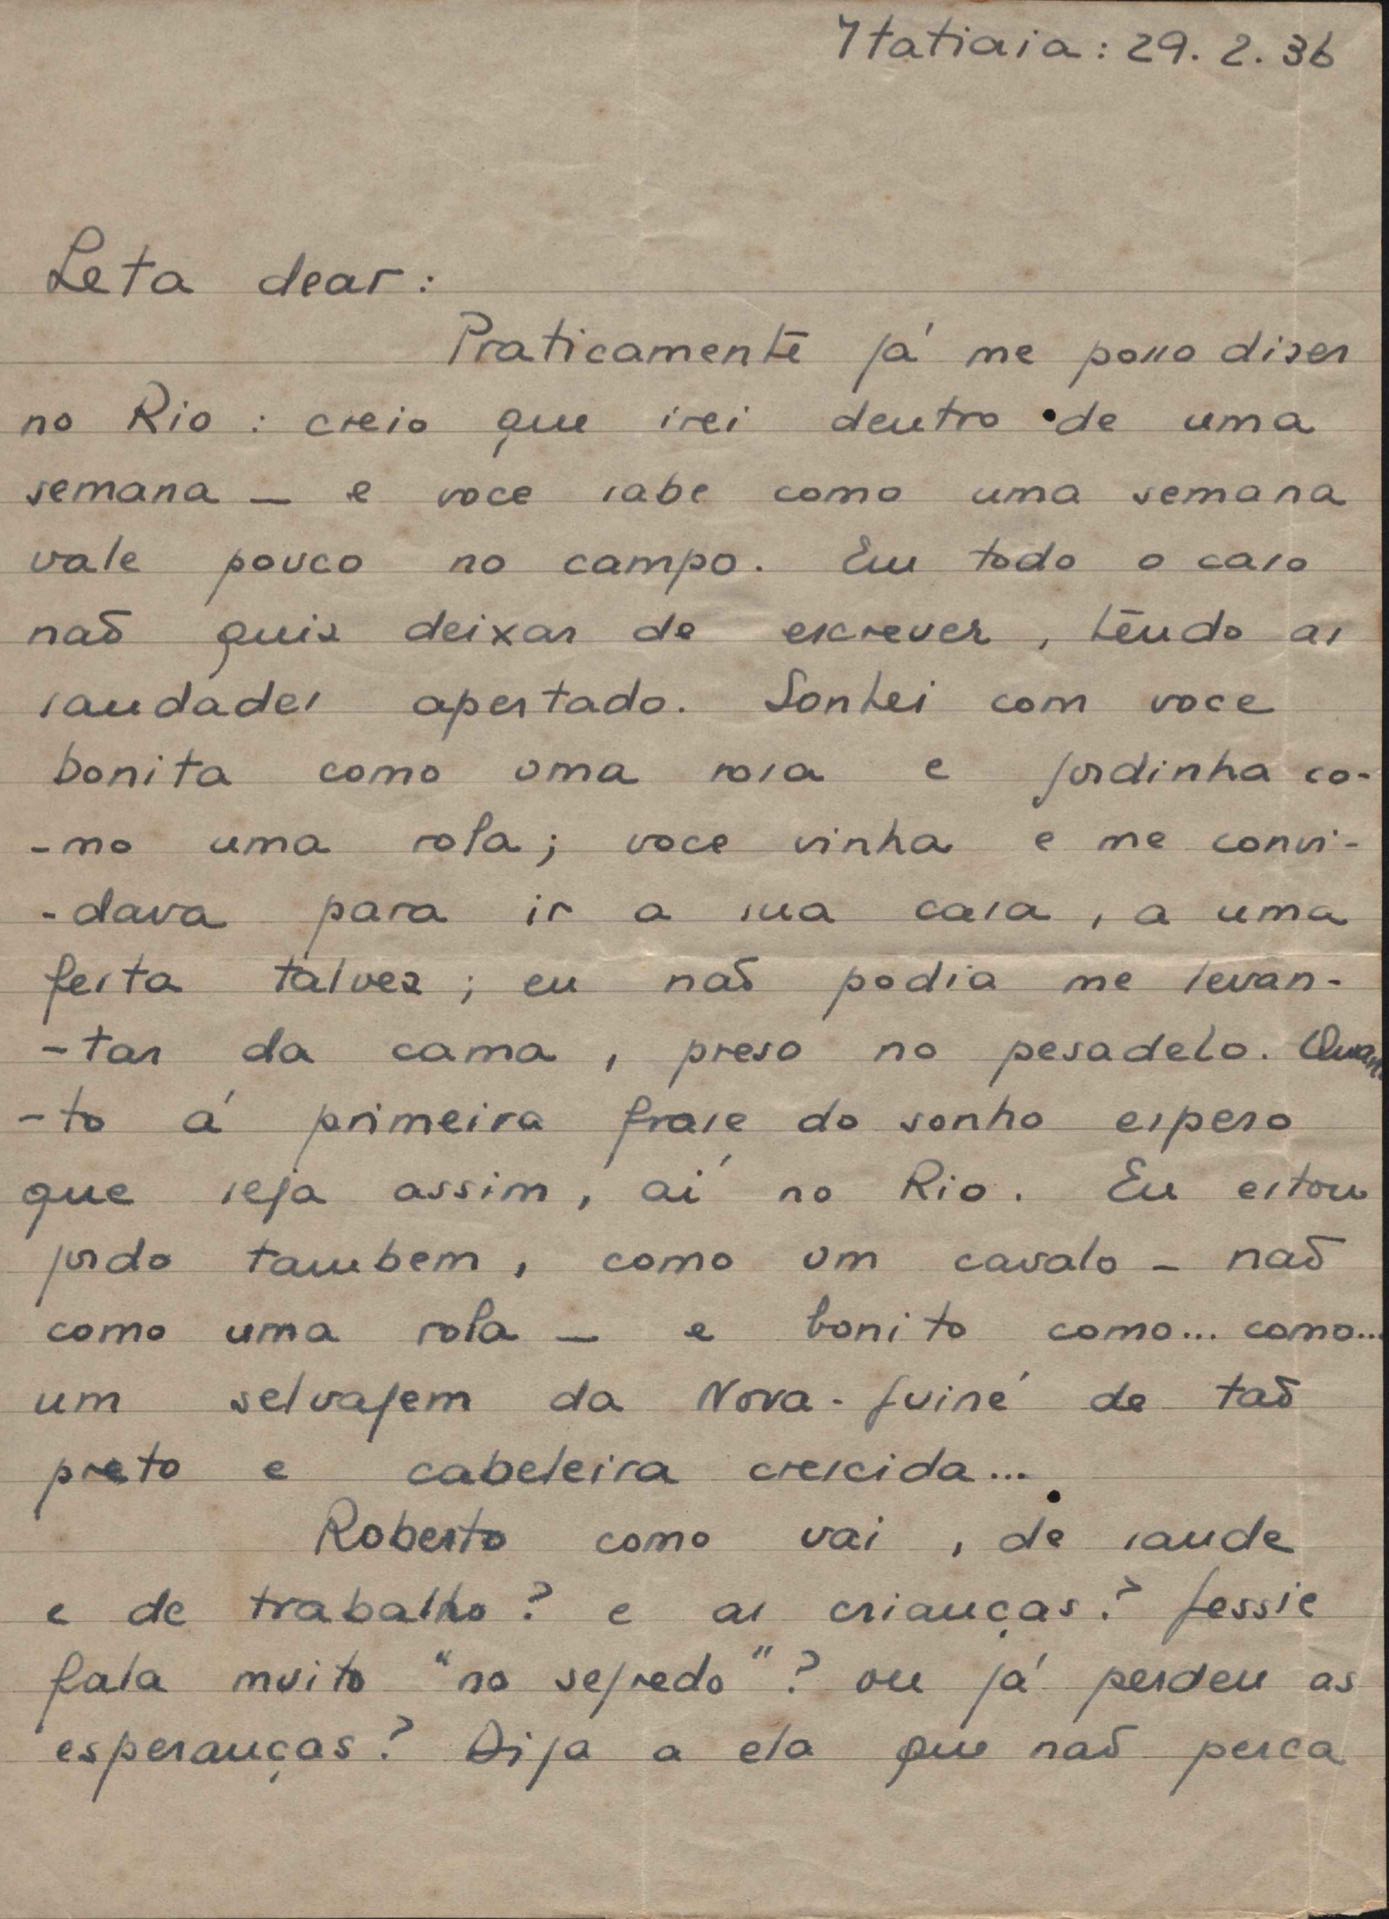 Itatiaia: 29. 2. 36
Leta dear:
Praticamente já me posso dizer
no Rio: creio que irei dentro de uma
semana — e voce sabe como uma semana
vale pouco no campo. Em todo o caso
não quiz deixar de escrever, tendo as
saudades apertado. Sonhei com voce
bonita como uma rosa e gordinha co-
-mo uma rola; voce vinha e me convi-
-dava para ir a sua casa, a uma
festa talvez; eu não podia me levan-
-tar da cama, preso no pesadelo. Quan-
-to á primeira frase do sonho espero
que seja assim, aí no Rio. Eu estou
gordo tambem, como um cavalo — não
como uma rola — e bonito como... como...
um selvagem da Nova-Guiné de tão
preto e cabeleira crescida...
Roberto como vai, de saude
e de trabalho? e as crianças? Jessie
fala muito "no segredo"? ou já perdeu as
esperanças? Diga a ela que não perca